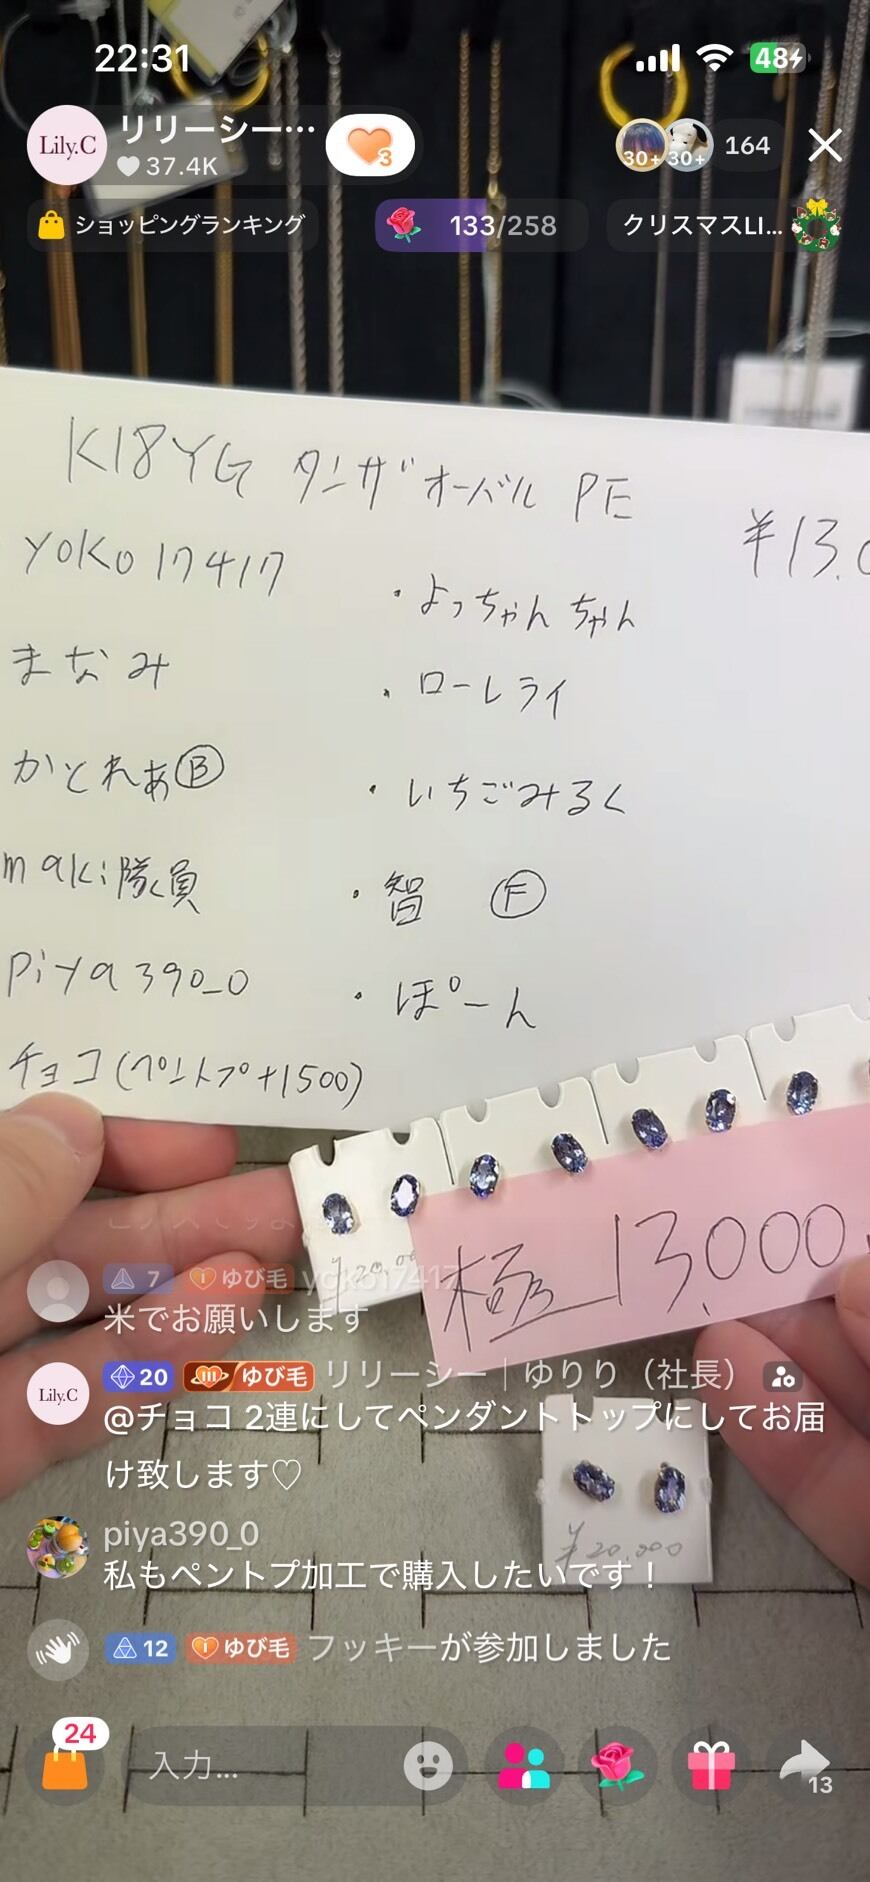 22:31
48
Lily.C
リリーシー…
3
37.4K
30+
30+
164
ショッピングランキング
133/258
クリスマスLI...
K18YG タンザ オーバル PE
¥13.0
yoko17417
・よっちゃんちゃん
まなみ
・ローレライ
かとれあⒷ
・いちごみるく
maki隊員
・智 Ⓕ
piya390_0
・ぽーん
チョコ(ペントプ+1500)
極 13,000
7 ゆび毛 yoko17417
米でお願いします
Lily.C
20 ゆび毛 リリーシー｜ゆりり（社長）
@チョコ 2連にしてペンダントトップにしてお届
け致します♡
¥20.000
piya390_0
私もペントプ加工で購入したいです！
12 ゆび毛 フッキーが参加しました
24
入力...
13